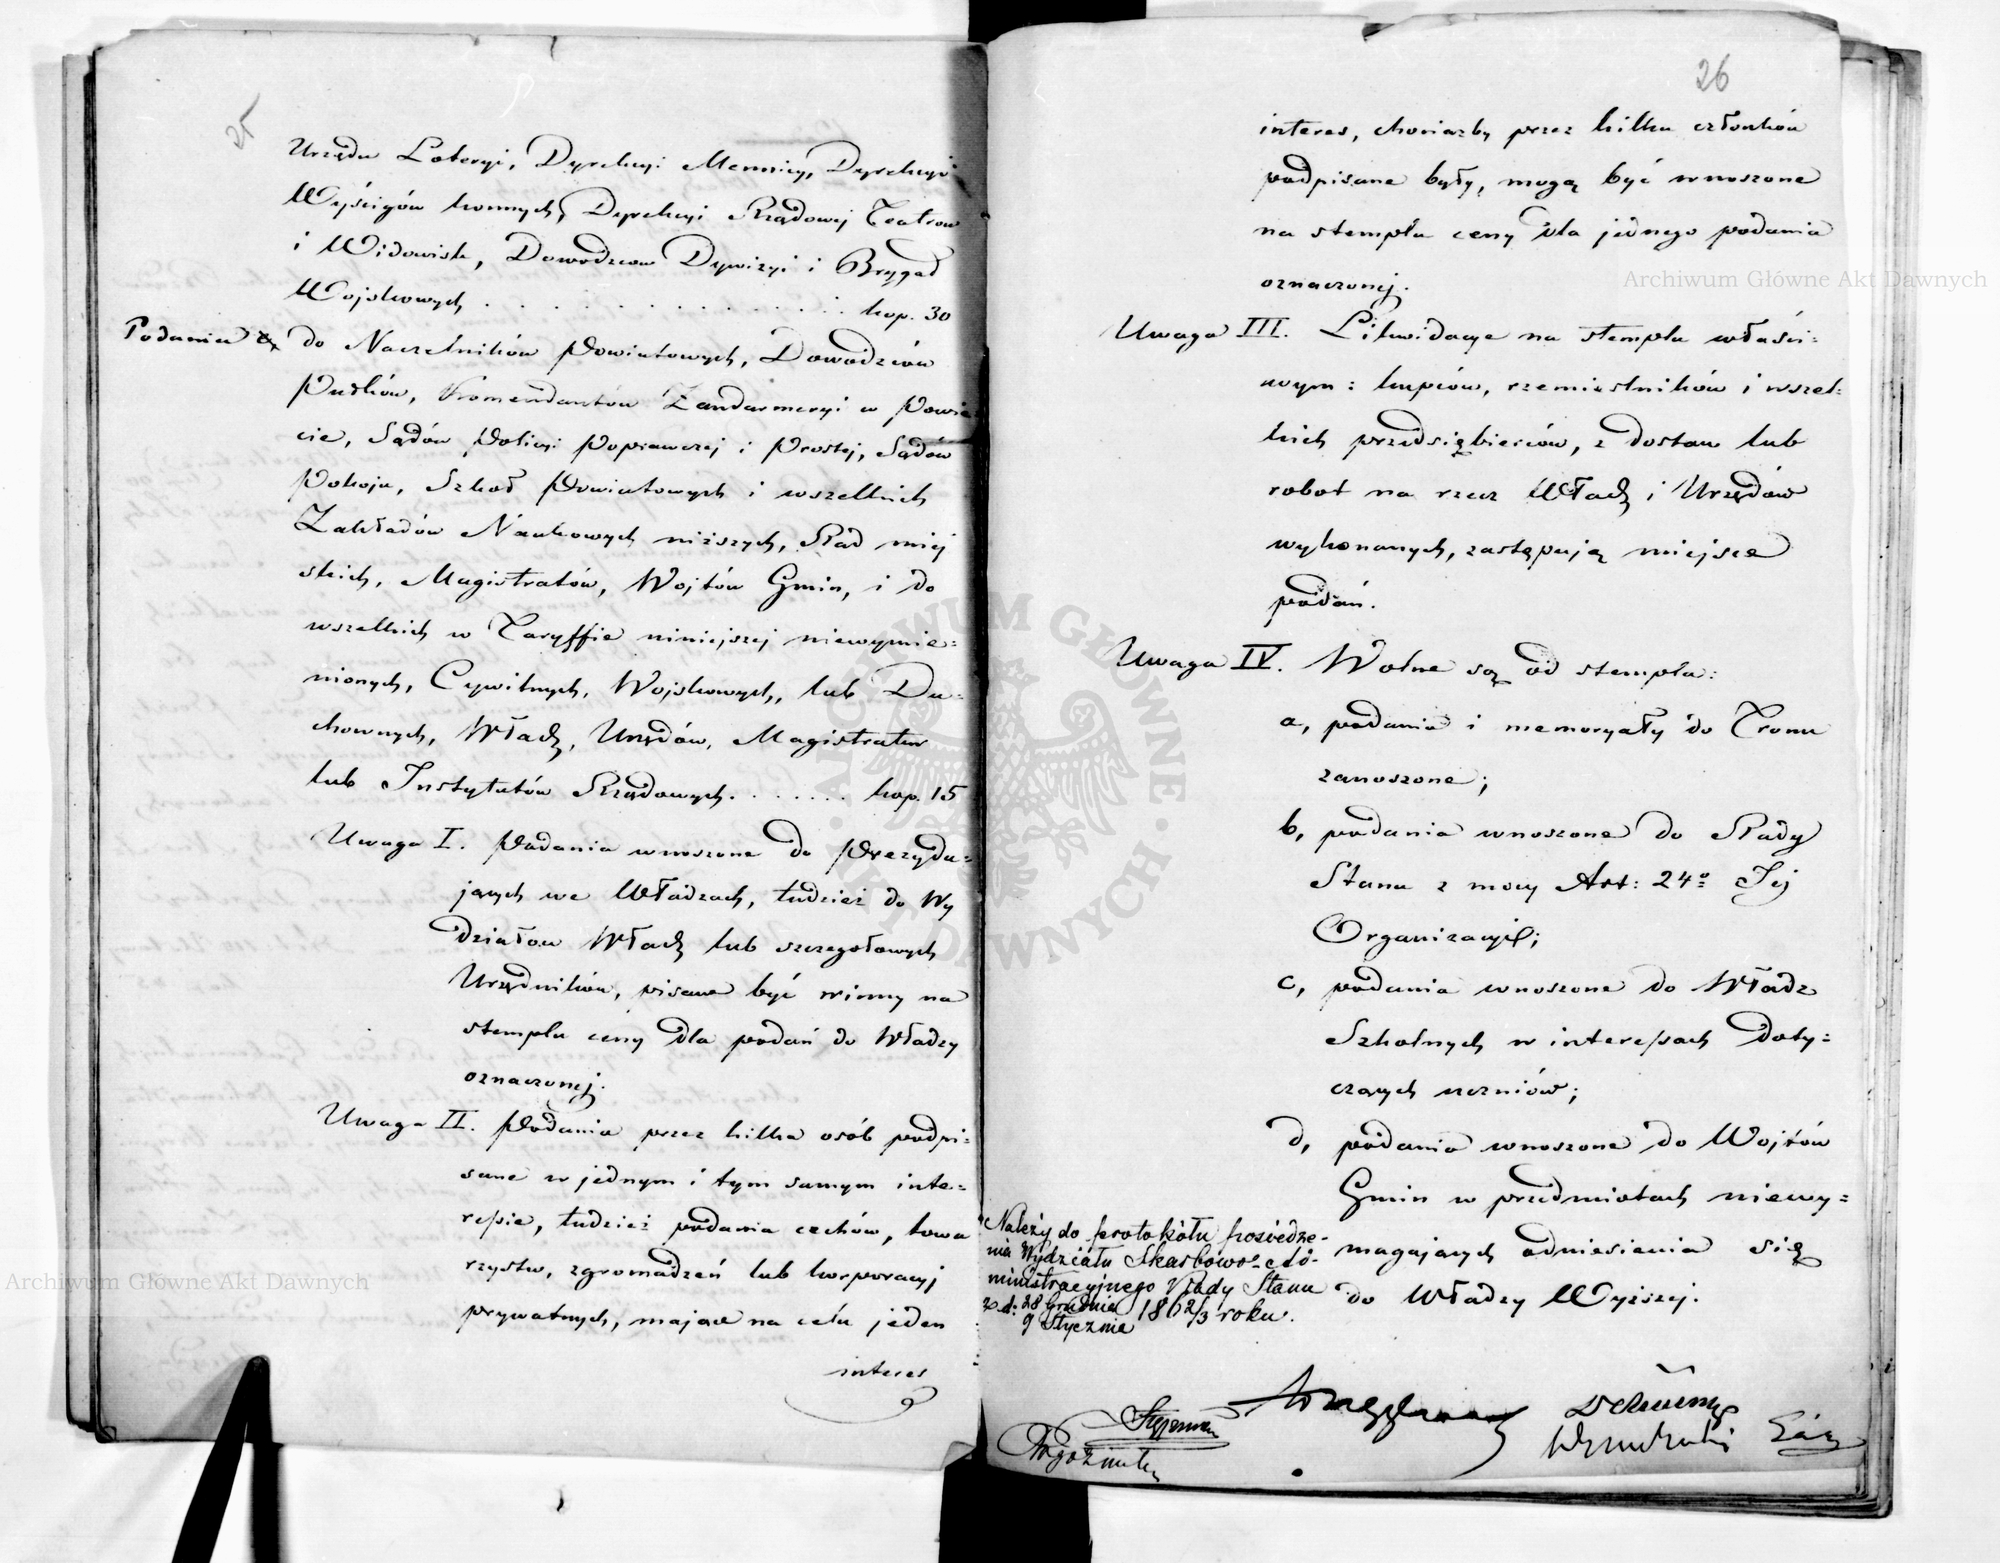 25
Urzędu Loteryi, Dyrekcyi Mennicy, Dyrekcyi
Wyścigów konnych, Dyrekcyi Rządowej Teatrów
i Widowisk, Dowodzców Dywizyi i Brygad
Wojskowych . . . . . . . . . . . . . . . kop. 30
Podania do Naczelników Powiatowych, Dowodzców
Pułków, Komendantów Żandarmeryi w Powie
cie, Sądów Policyi Poprawczej i Prostej, Sądów
Pokoju, Szkoł Powiatowych i wszelkich
Zakładów Naukowych niższych, Rad miej
skich, Magistratów, Wojtów Gmin, i do
wszelkich w Taryffie niniejszej niewymie=
nionych, Cywilnych, Wojskowych, lub Du=
chownych, Władz, Urzędów, Magistratur
lub Instytutów Rządowych. . . . . . . kop. 15
Uwaga I. Podania wnoszone do Prezydu=
jących we Władzach, tudzież do Wy
działów Władz lub szczegołowych
Urzędników, pisane być winny na
stemplu ceny dla podań do Władzy
oznaczonej.
Uwaga II. Podania przez kilka osób podpi=
sane w jednym i tym samym inte=
ressie, tudzież podania cechów, towa
rzystw, zgromadzeń lub korporacyj
prywatnych, mające na celu jeden
interes
26
interes, chociażby przez kilku członków
podpisane były, mogą być wnoszone
na stemplu ceny dla jednego podania
oznaczonej.
Archiwum Główne Akt Dawnych
Uwaga III. Likwidacye na stemplu właści=
wym: kupców, rzemieślników i wszel=
kich przedsiębierców, z dostaw lub
robot na rzecz Władz i Urzędów
wykonanych, zastępują miejsce
podań.
Uwaga IV. Wolne są od stempla:
a, podania i memoryały do Tronu
zanoszone;
b, podania wnoszone do Rady
Stanu z mocy Art: 24º Jej
Organizacyi;
c, podania wnoszone do Władz
Szkolnych w interessach doty=
czących uczniów;
d, podania wnoszone do Wojtów
Gmin w przedmiotach niewy=
magających odniesienia się
do Władzy Wyższej.
Należy do protokółu posiedze-
nia Wydziału Skarbowo-Ad-
ministracyjnego Rady Stanu
z d: 28 Grudnia
9 Stycznia 1862/3 roku.
ARCHIWUM GŁÓWNE · AKT DAWNYCH ·
Archiwum Główne Akt Dawnych